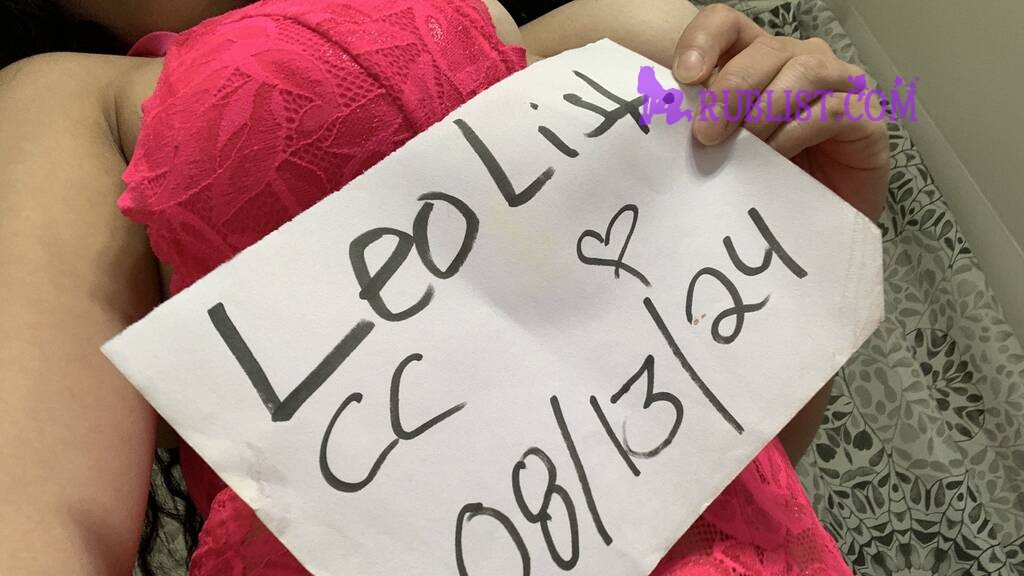 RUBLIST.COM
LeoList
CC
08/13/24